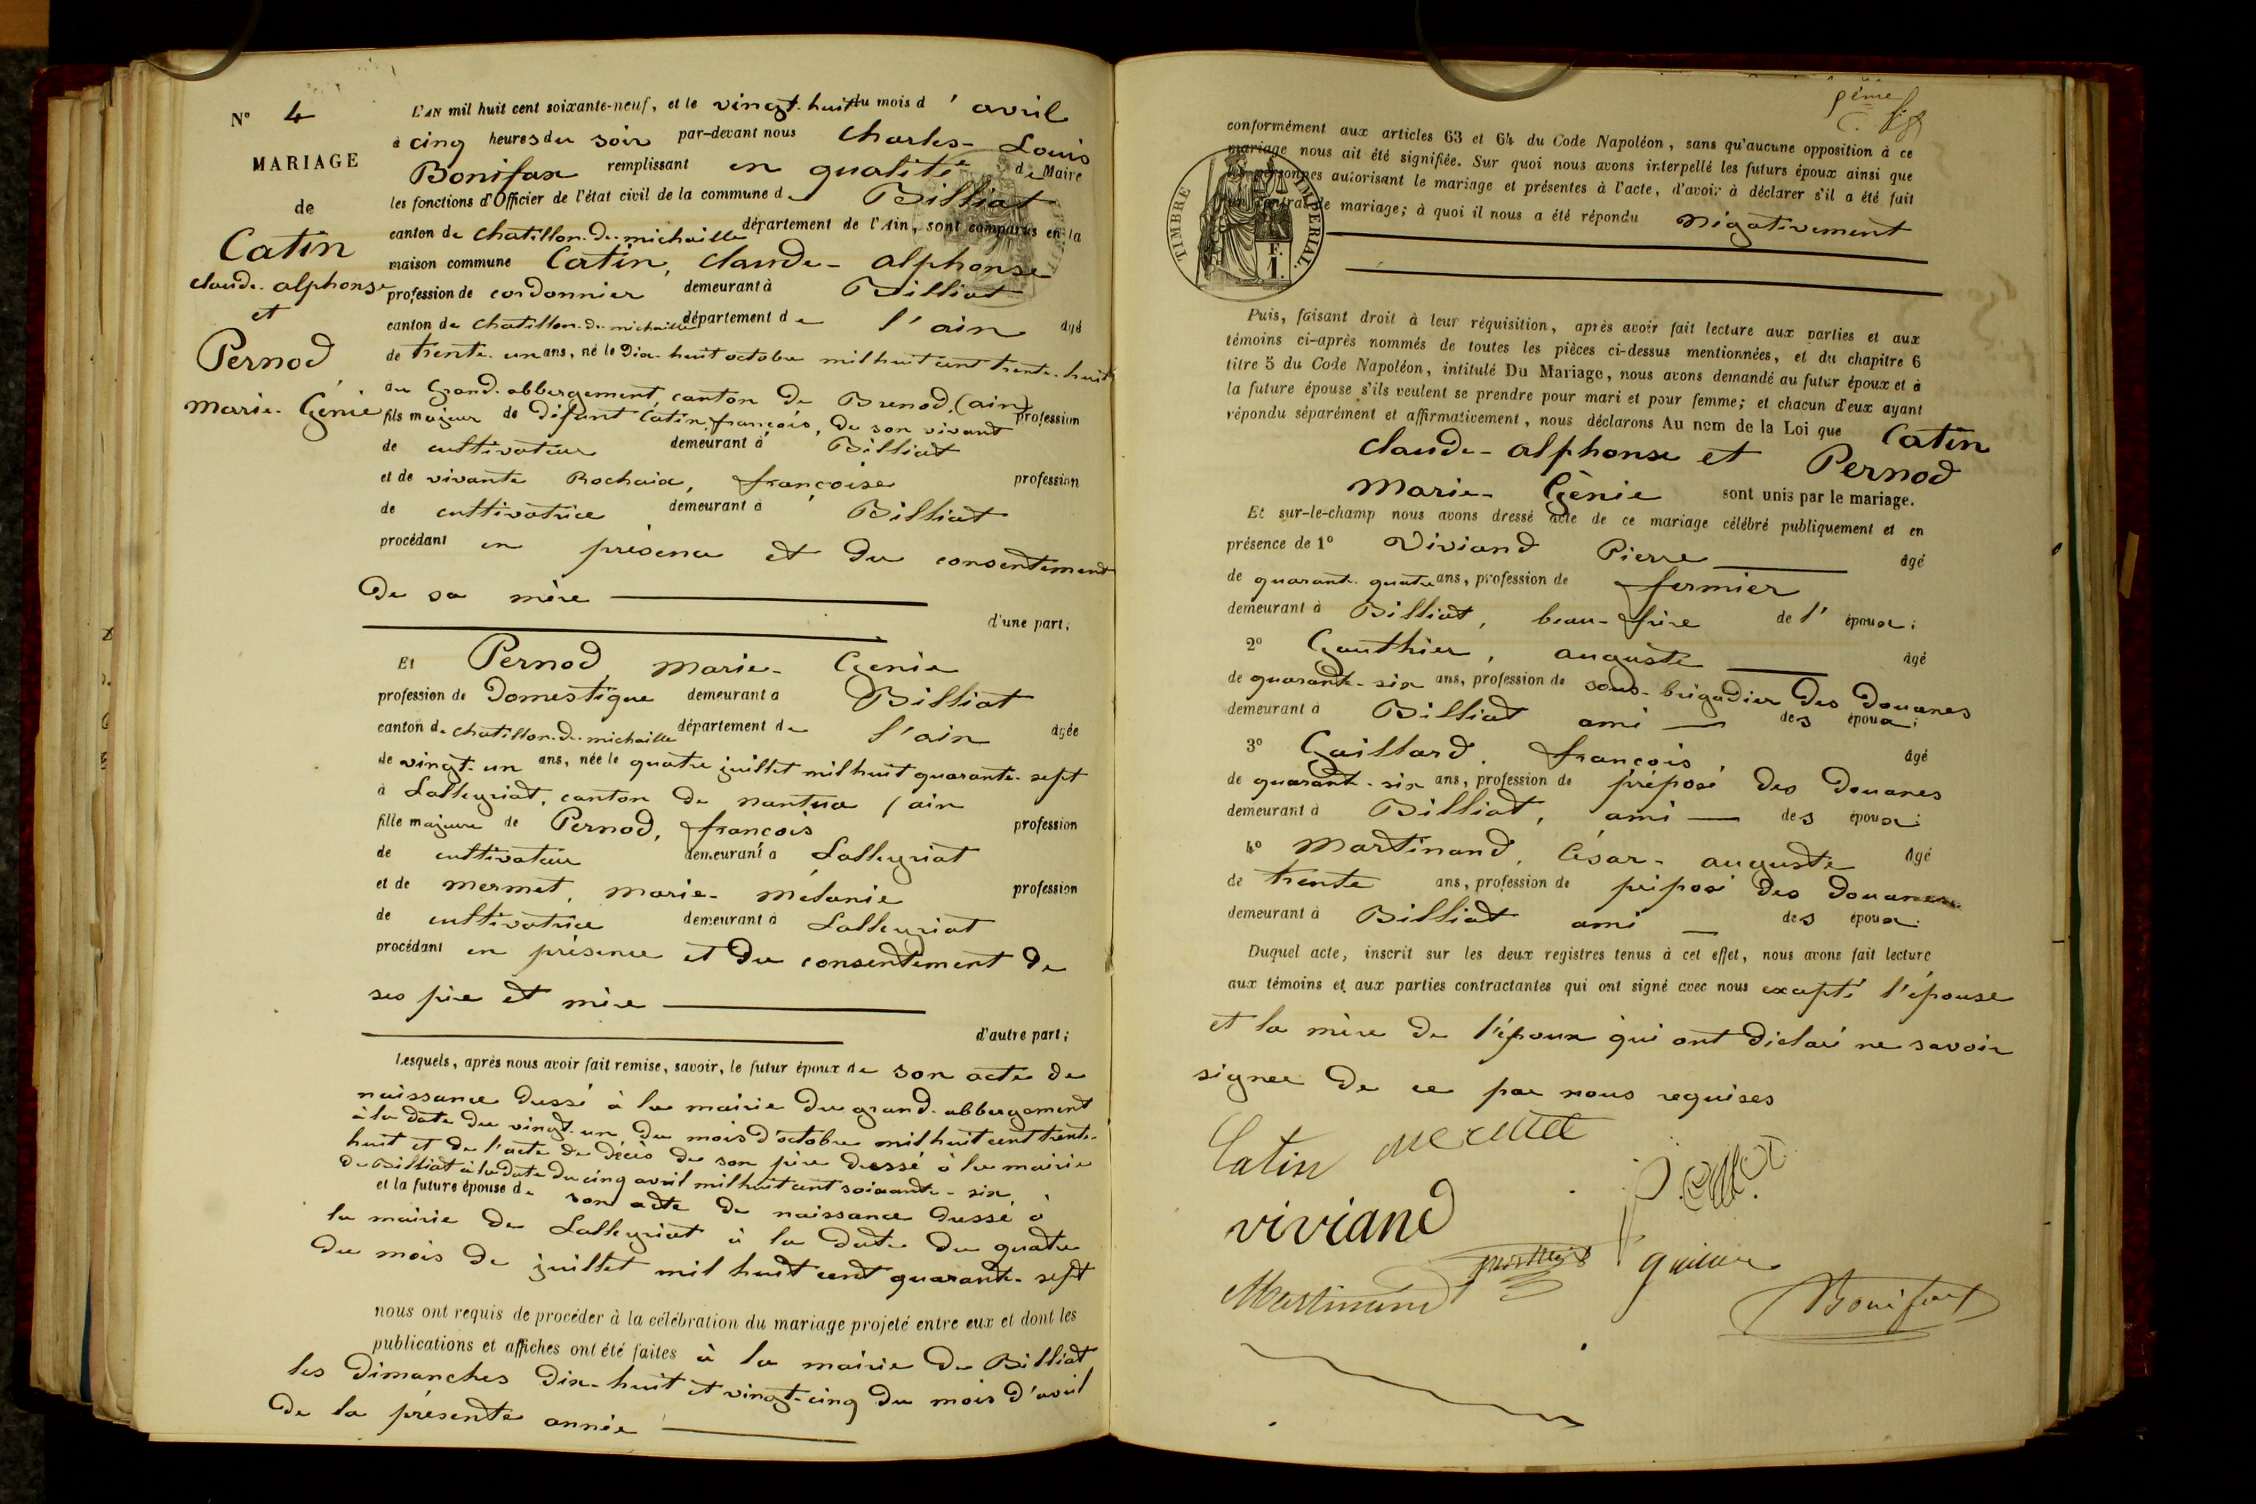 N° 4
MARIAGE
de
Catin
claude-alphonse
et
Pernod
marie-Génie
L'AN mil huit cent soixante-neuf, et le vingt-huit du mois d'avril
à cinq heures du soir par-devant nous Charles-Louis
Bonifax remplissant en qualité de Maire
les fonctions d'Officier de l'état civil de la commune de Billiat
canton de chatillon-de-michaille département de l'Ain, sont comparus en la
maison commune Catin, claude-alphonse
profession de cordonnier demeurant à Billiat
canton de chatillon-de-michaille département de l'ain âgé
de trente-un ans, né le dix-huit octobre mil huit cent trente-huit
au Grand-abbergement, canton de Brenod, (ain)
fils majeur de défunt Catin françois, de son vivant profession
de cultivateur demeurant à Billiat
et de vivante Rochaix, françoise profession
de cultivatrice demeurant à Billiat
procédant en présence et du consentement
de sa mère
d'une part;
Et Pernod marie-Génie
profession de Domestique demeurant à Billiat
canton de chatillon-de-michaille département de l'ain âgée
de vingt-un ans, née le quatre juillet mil huit quarante-sept
à Lalleyriat, canton de nantua (ain
fille majeure de Pernod, françois profession
de cultivateur demeurant à Lalleyriat
et de mermet, marie-mélanie profession
de cultivatrice demeurant à Lalleyriat
procédant en présence et du consentement de
ses père et mère
d'autre part;
Lesquels, après nous avoir fait remise, savoir, le futur époux de son acte de
naissance dressé à la mairie du grand-abbergement
à la date du vingt-un du mois d'octobre mil huit cent trente-
huit et de l'acte de décès de son père dressé à la mairie
de Billiat à la date du cinq avril mil huit cent soixante-six
et la future épouse de son acte de naissance dressé à
la mairie de Lalleyriat à la date du quatre
du mois de juillet mil huit cent quarante-sept
nous ont requis de procéder à la célébration du mariage projeté entre eux et dont les
publications et affiches ont été faites à la mairie de Billiat
les dimanches dix-huit et vingt-cinq du mois d'avril
de la présente année
conformément aux articles 63 et 64 du Code Napoléon, sans qu'aucune opposition à ce
mariage nous ait été signifiée. Sur quoi nous avons interpellé les futurs époux ainsi que
les personnes autorisant le mariage et présentes à l'acte, d'avoir à déclarer s'il a été fait
un contrat de mariage; à quoi il nous a été répondu Négativement
TIMBRE IMPERIAL.
F.
1.
Puis, faisant droit à leur réquisition, après avoir fait lecture aux parties et aux
témoins ci-après nommés de toutes les pièces ci-dessus mentionnées, et du chapitre 6
titre 5 du Code Napoléon, intitulé Du Mariage, nous avons demandé au futur époux et à
la future épouse s'ils veulent se prendre pour mari et pour femme; et chacun d'eux ayant
répondu séparément et affirmativement, nous déclarons Au nom de la Loi que Catin
claude-alphonse et Pernod
marie-Génie sont unis par le mariage.
Et sur-le-champ nous avons dressé acte de ce mariage célébré publiquement et en
présence de 1° Viviand Pierre âgé
de quarante-quatre ans, profession de fermier
demeurant à Billiat, beau-frère de l'époux;
2° Gauthier, auguste âgé
de quarante-six ans, profession de sous-brigadier des Douanes
demeurant à Billiat ami des époux;
3° Gaillard, françois, âgé
de quarante-six ans, profession de préposé des Douanes
demeurant à Billiat, ami des époux;
4° Martinand, César-auguste âgé
de trente ans, profession de préposé des Douanes
demeurant à Billiat ami des époux.
Duquel acte, inscrit sur les deux registres tenus à cet effet, nous avons fait lecture
aux témoins et aux parties contractantes qui ont signé avec nous excepté l'épouse
et la mère de l'époux qui ont déclaré ne savoir
signer de ce par nous requises
Catin mermet
viviand
Martinand
Bonifax